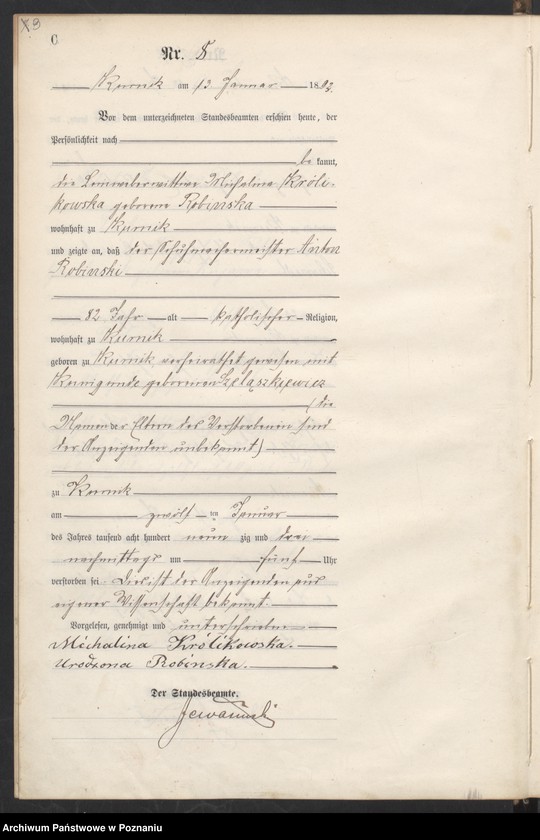 C
Nr. 8
Kurnik am 13 Januar 1893.
Vor dem unterzeichneten Standesbeamten erschien heute, der
Persönlichkeit nach
be kannt,
die Leinweberwittwe Michalina Króli-
kowska geborene Robińska
wohnhaft zu Kurnik
und zeigte an, daß der Schuhmachermeister Anton
Robinski
82 Jahr alt katholischer Religion,
wohnhaft zu Kurnik
geboren zu Kurnik, verheirathet gewesen mit
Kunigunde geborenen Szelążkiewicz
(die
Namen der Eltern des Verstorbenen sind
der Anzeigenden unbekannt)
zu Kurnik
am zwölf ten Januar
des Jahres tausend acht hundert neun zig und drei
nachmittags um fünf Uhr
verstorben sei. Dies ist der Anzeigenden aus
eigener Wissenschaft bekannt.
Vorgelesen, genehmigt und unterschrieben
Michalina Królikowska.
Urodzona Robinska.
Der Standesbeamte.
Archiwum Państwowe w Poznaniu